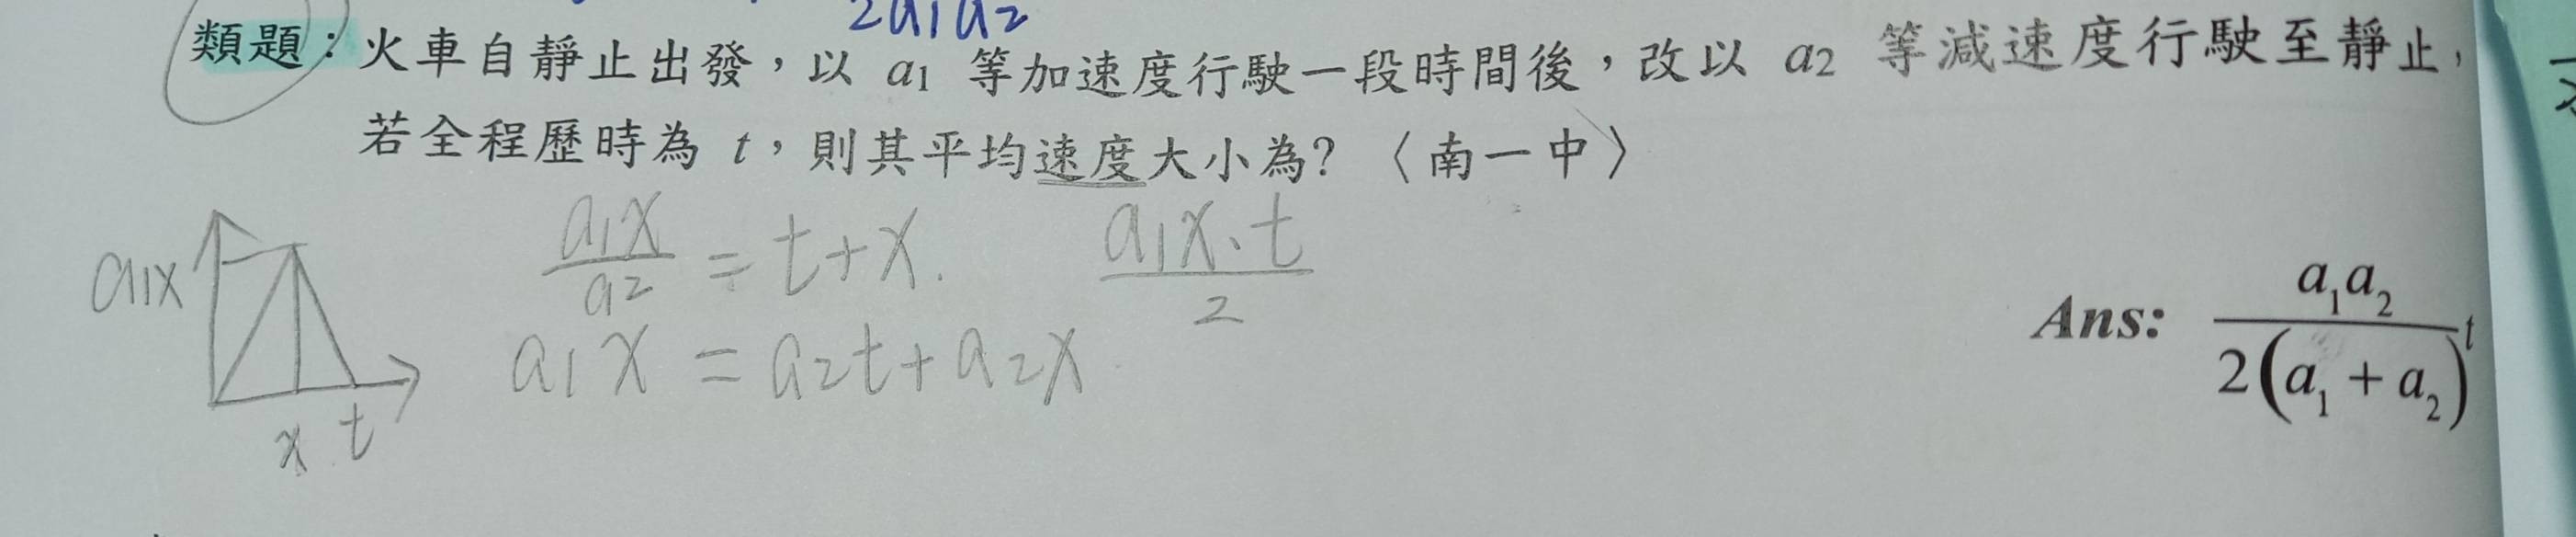 2a₁a₂
類題：火車自靜止出發，以 a₁ 等加速度行駛一段時間後，改以 a₂ 等減速度行駛至靜止，
若全程歷時為 t，則其平均速度大小為？〈南一中〉
a₁x
x t
a₁x/a₂ = t+x.
a₁x = a₂t+a₂x
a₁x·t/2
Ans: a₁a₂/2(a₁+a₂) t